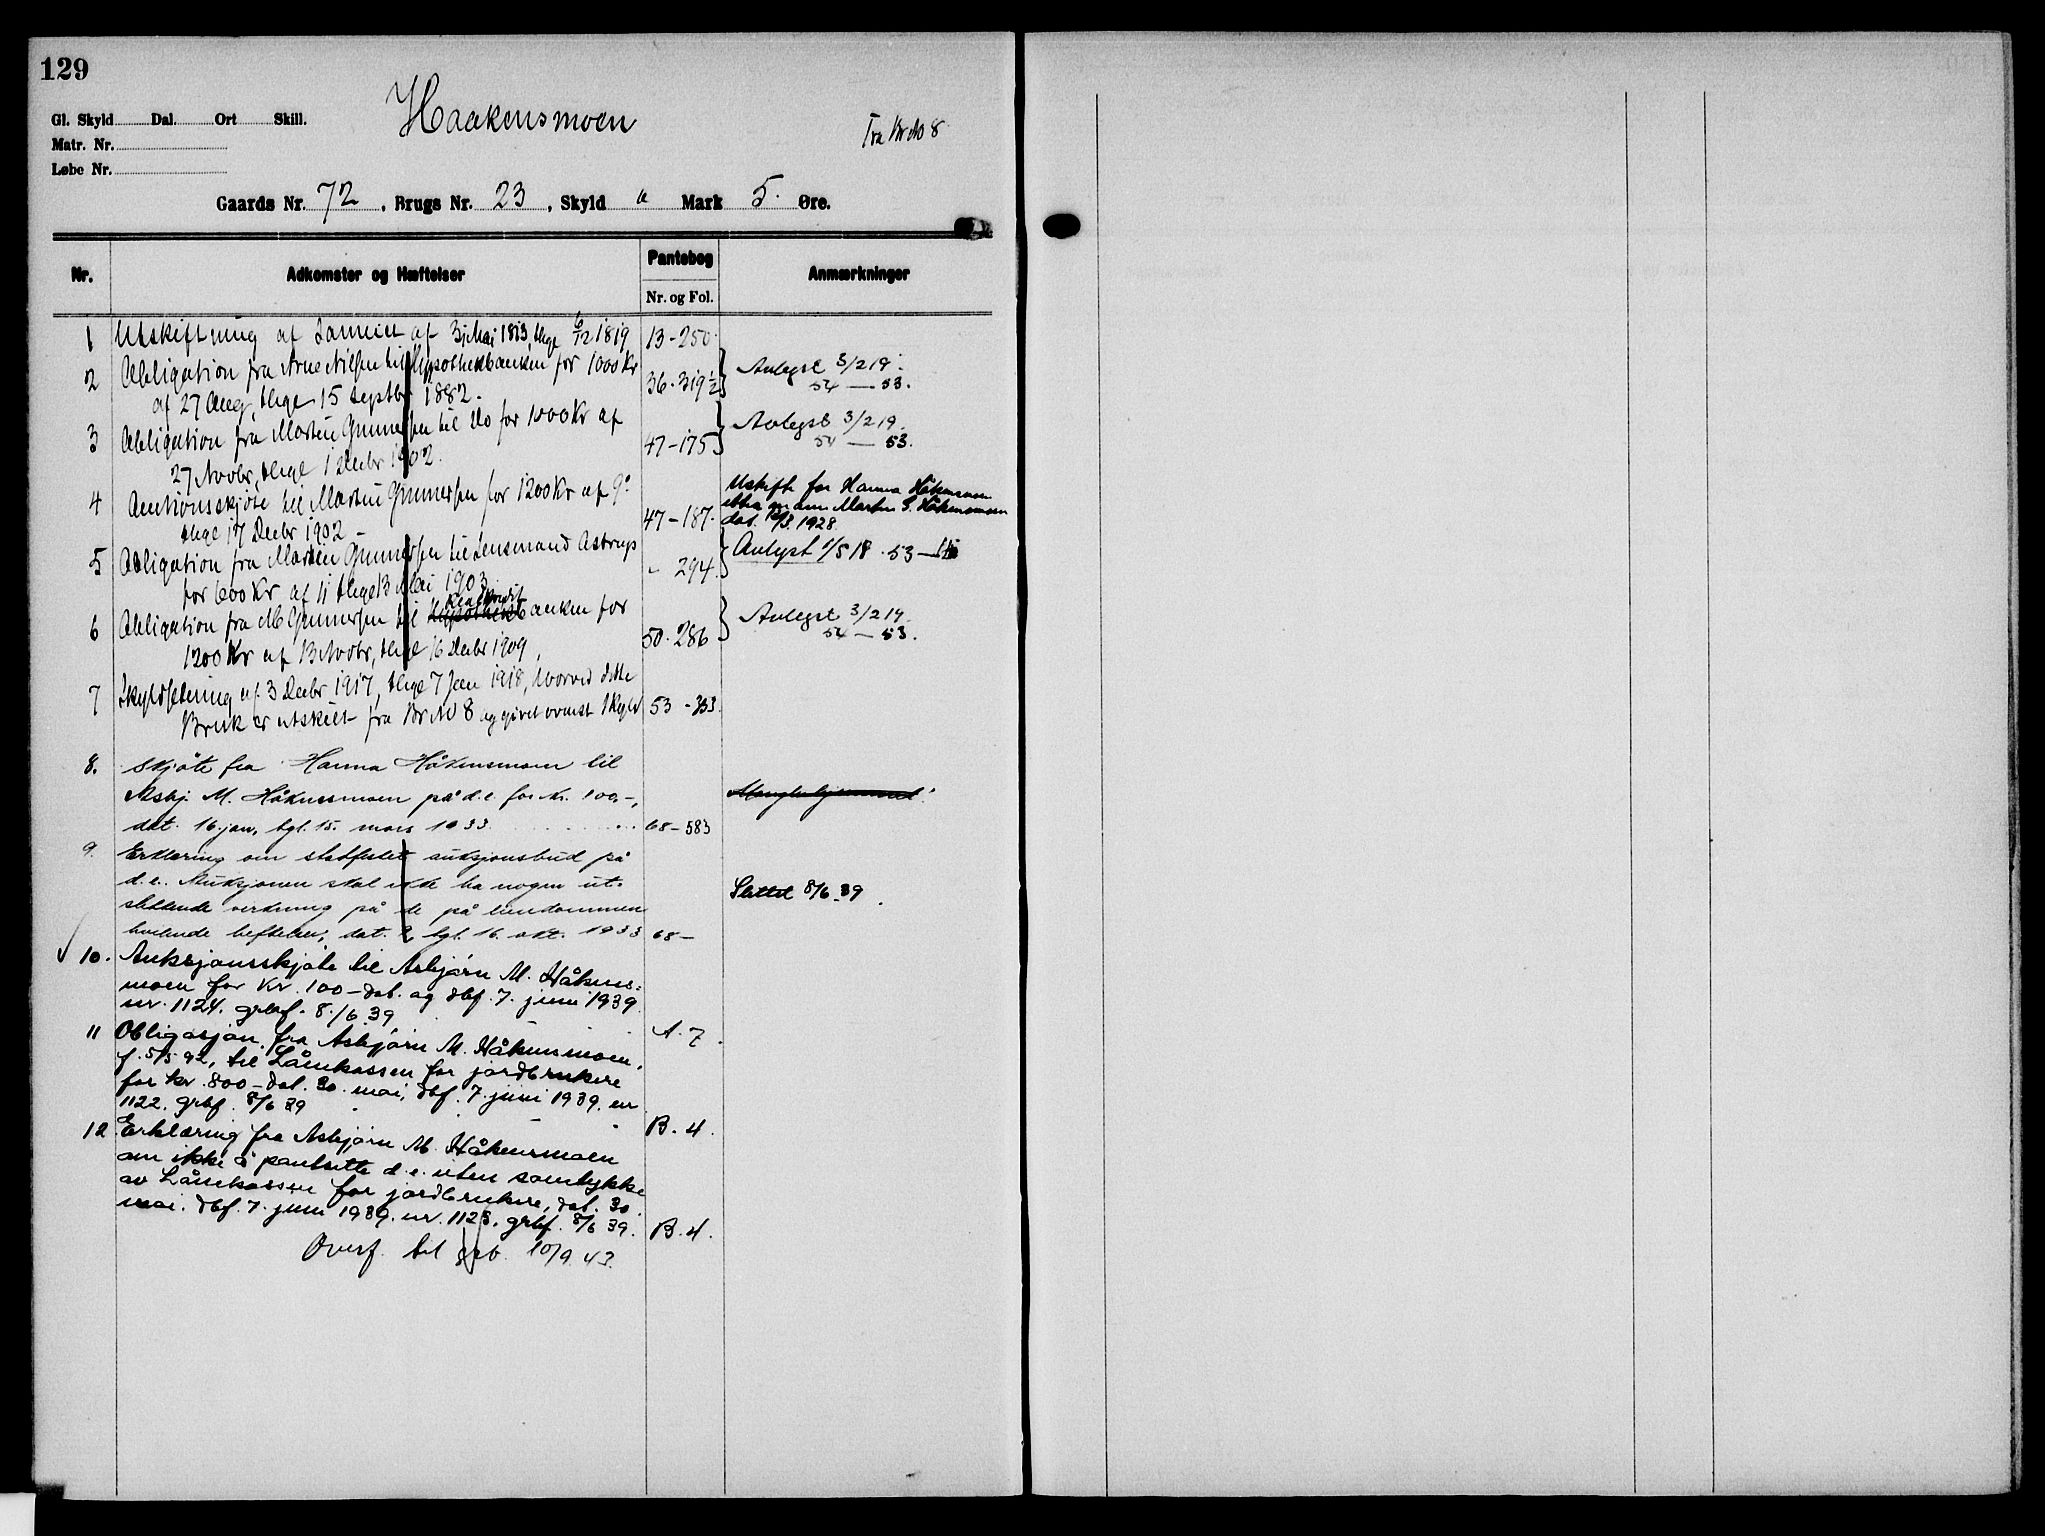 129
Gl. Skyld Dal. Ort Skill.
Haakensmoen
Fra Br No 8
Matr. Nr.
Løbe Nr.
Gaards Nr. 72, Brugs Nr. 23, Skyld " Mark 5. Øre.
Nr. Adkomster og Hæftelser Pantebog Anmærkninger
Nr. og Fol.
1 Utskiftning af Sameiet af 3 Mai 1813, thgl 6/12 1819 13-250
2 Obligation fra Arne Nilsen til Hypothekbanken for 1000 Kr
af 27 Aug, thgl 15 Septbr 1882. 36-319½ Avlyst 3/2 19.
54 — 53.
3 Obligation fra Martin Gunnersen til Do for 1000 Kr af
27 Novbr, thgl 1 Decbr 1902. 47-175 Avlyst 3/2 19.
54 — 53.
4 Auctionsskjøte til Martin Gunnersen for 1200 Kr af 9'
thgl 17 Decbr 1902 - 47-187. Uskifte for Hanna Håkensmoen
etter mann Martin G. Håkensmoen
dat. 1928.
5 Obligation fra Martin Gunnersen til Lensmand Astrup
for 600 Kr af 11 thgl 13 Mai 1903 " 294. Avlyst 1/5 18. 53 —
6 Obligation fra M Gunnersen til Hypothekbanken for
1200 Kr af 13 Novbr, thgl 16 Decbr 1909, 50-286 Avlyst 3/2 19.
54 — 53.
7 Skyldsetning af 3 Decbr 1917, thgl 7 Jan 1918, hvorved dette
Bruk er utskilt fra Br No 8 og givet ovenst Skyld 53-333.
8. Skjøte fra Hanna Håkensmoen til
Asbj. M. Håkensmoen på d.e. for kr. 100,-,
dat. 16. jan, tgl. 15. mars 1933 68-583
9. Erklæring om stadfestet auksjonsbud på
d.e. Auksjonen skal ikke ha nogen ut-
slettende virkning på de på eiendommen
hvilende heftelser, dat. 2, tgl. 16. okt. 1933 68- Slettet 8/6.39.
10. Auksjonsskjøte til Asbjørn M. Håkens-
moen for kr. 100- dat. og dbf. 7. juni 1939
nr. 1124. grbf. 8./6.39 A. 7.
11 Obligasjon fra Asbjørn M. Håkensmoen,
f. 5/5.92, til Lånekassen for jordbrukere
for kr. 800- dat. 30. mai, dbf. 7. juni 1939. nr
1122. grbf. 8/6 39 B. 4.
12 Erklæring fra Asbjørn M. Håkensmoen
om ikke å pantsette d.e. uten samtykke
av Lånekassen for jordbrukere, dat. 30.
mai. dbf. 7. juni 1939. nr. 1123. grbf. 8/6 39. B. 4.
Overf. til grb. 10/9.43.